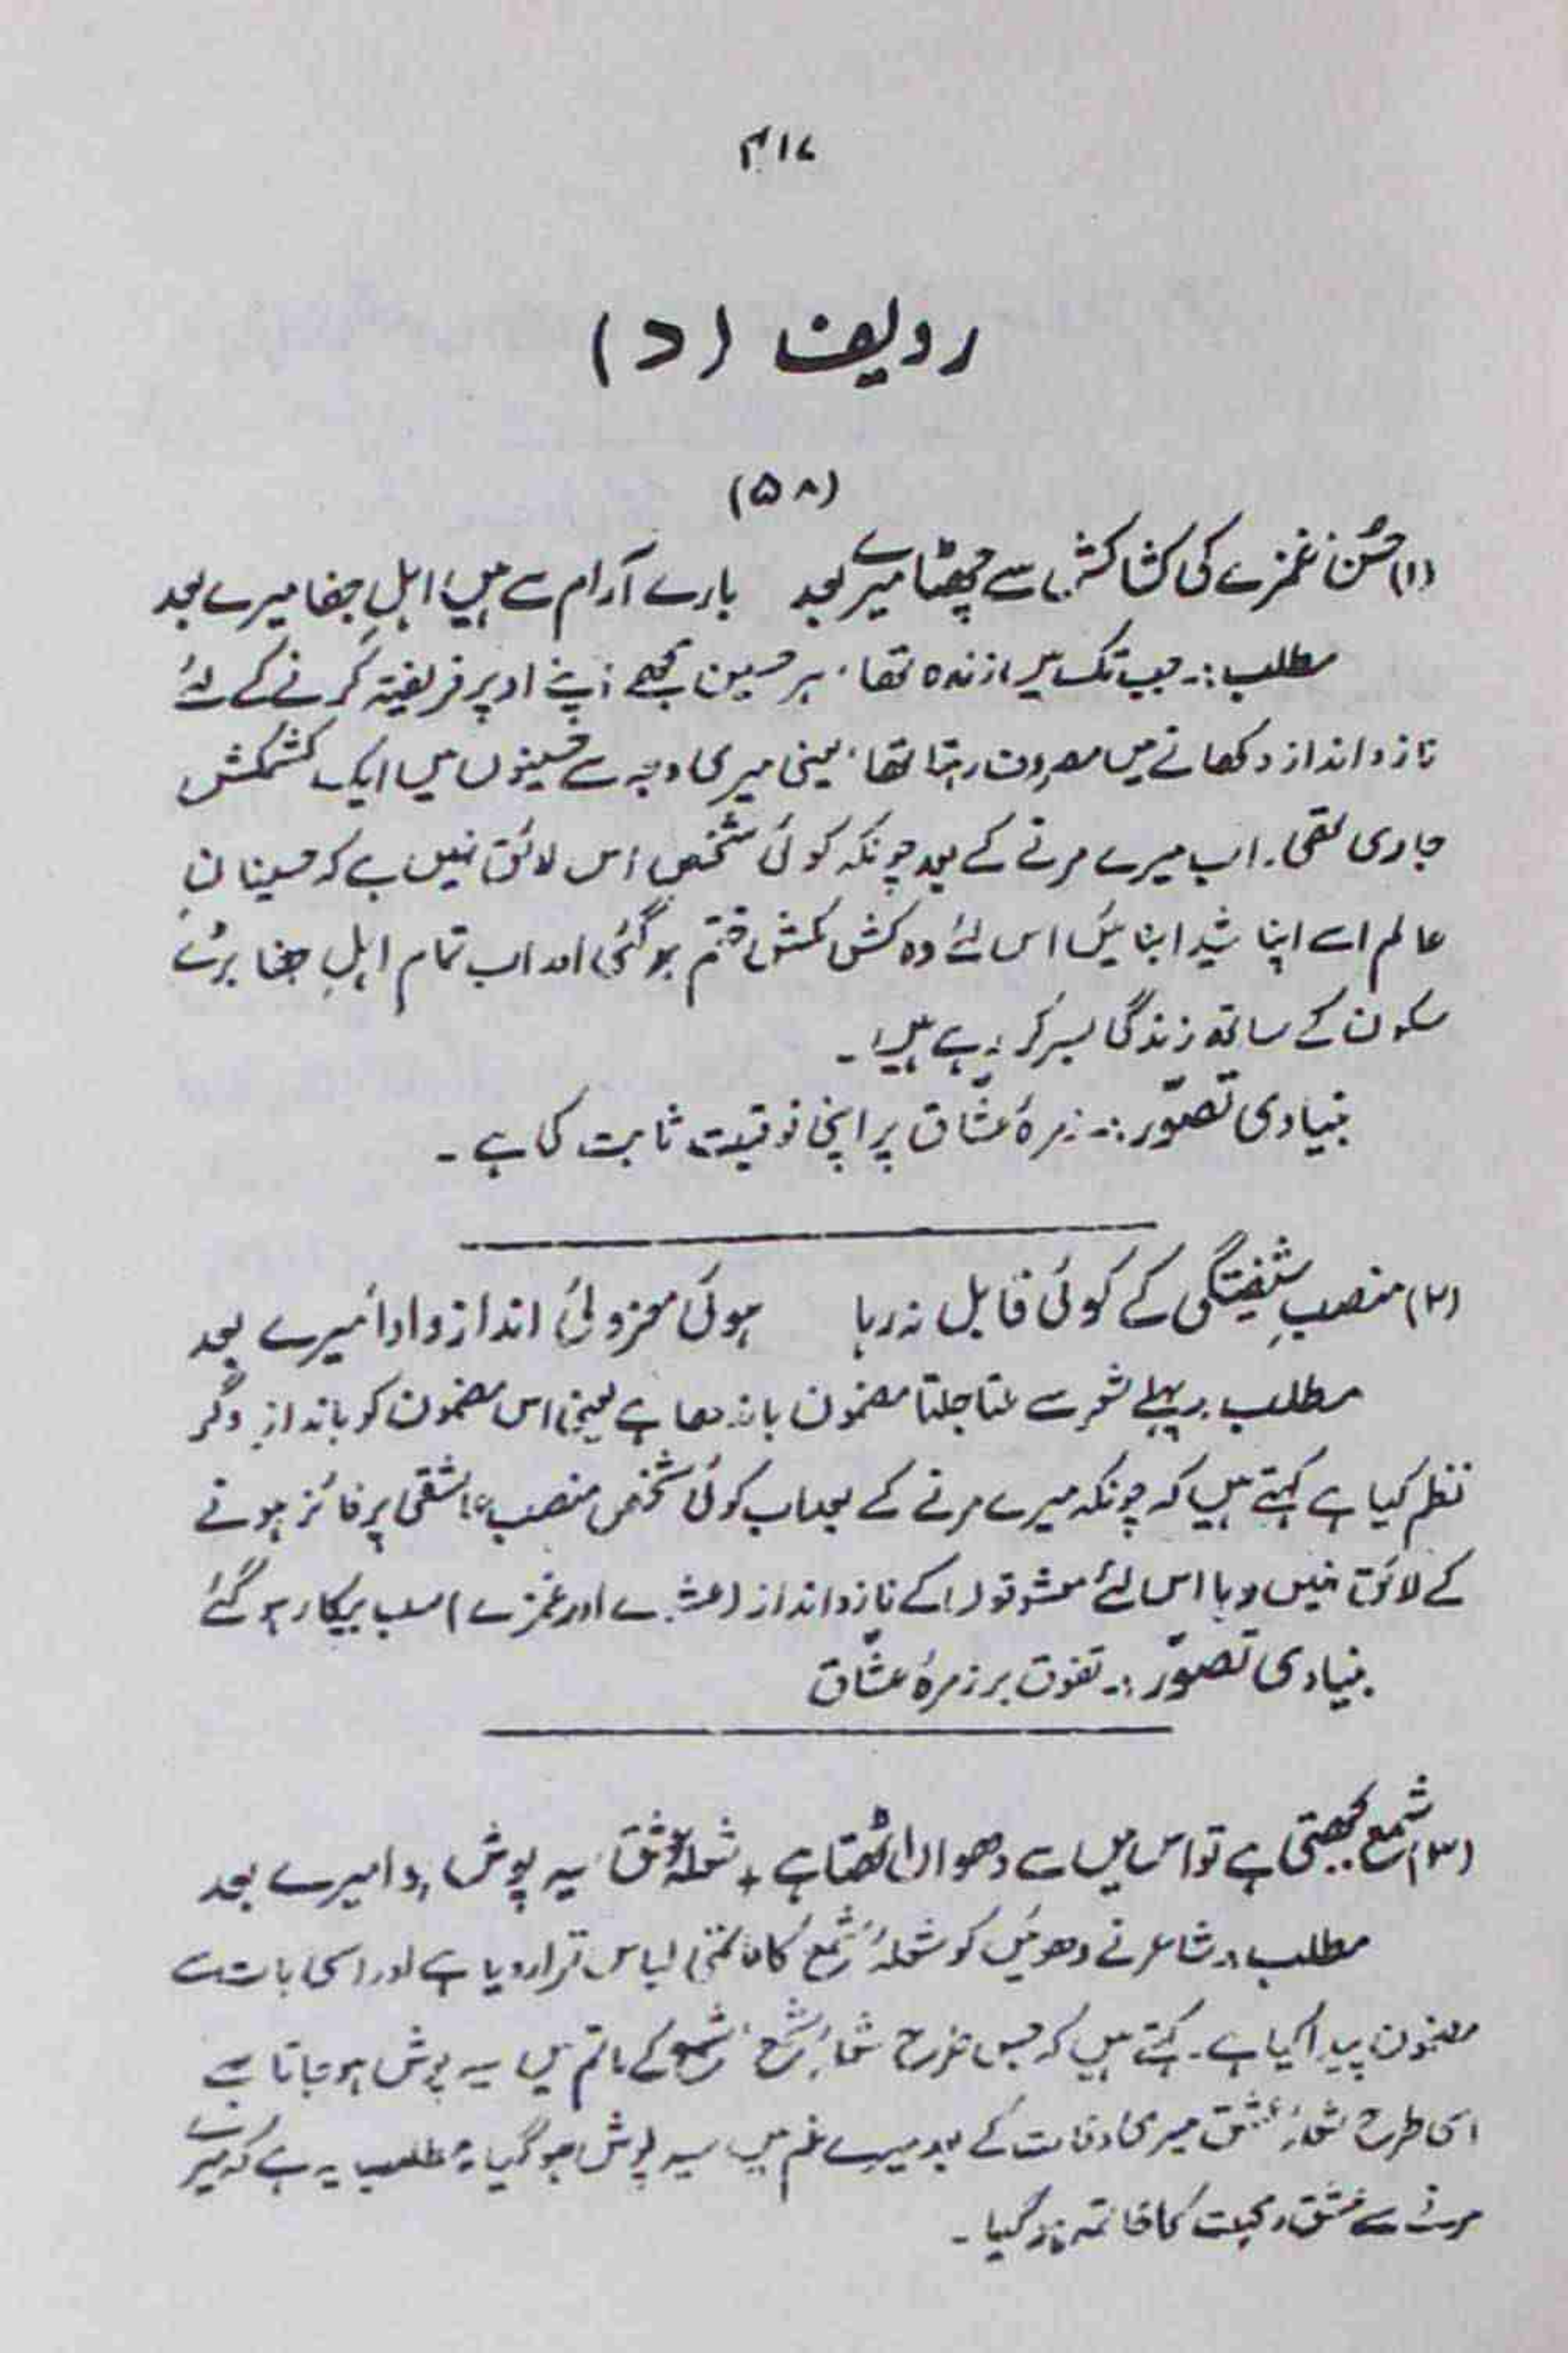 ۴۱۷
ردیف (د)
(۵۸)
(۱) حُسن غمزے کی کشاکش سے چھٹا میرے بعد بارے آرام سے ہیں اہلِ جفا میرے بعد
مطلب:۔ جب تک میں زندہ تھا، ہر حسین مجھے اپنے اوپر فریفتہ کرنے کے لئے
ناز و انداز دکھانے میں مصروف رہتا تھا، یعنی میری وجہ سے حسینوں میں ایک کشمکش
جاری تھی۔ اب میرے مرنے کے بعد چونکہ کوئی شخص اس لائق نہیں ہے کہ حسینانِ
عالم اسے اپنا شیدا بنائیں اس لئے وہ کش مکش ختم ہو گئی اور اب تمام اہلِ جفا بڑے
سکون کے ساتھ زندگی بسر کر رہے ہیں۔
بنیادی تصوّر:۔ زمرۂ عشّاق پر اپنی فوقیت ثابت کی ہے۔
(۲) منصبِ شیفتگی کے کوئی قابل نہ رہا ہوئی معزولیٔ انداز و ادا میرے بعد
مطلب:۔ پہلے شعر سے ملتا جلتا مضمون باندھا ہے یعنی اس مضمون کو بانداز دگر
نظم کیا ہے کہتے ہیں کہ چونکہ میرے مرنے کے بعد اب کوئی شخص منصب عاشقی پر فائز ہونے
کے لائق نہیں رہا اس لئے معشوقوں کے ناز و انداز (عشوے اور غمزے) سب بیکار ہو گئے
بنیادی تصوّر:۔ تفوق بر زمرۂ عشّاق
(۳) شمع بجھتی ہے تو اس میں سے دھواں اٹھتا ہے + شعلۂ عشق سیہ پوش ہوا میرے بعد
مطلب:۔ شاعر نے دھوئیں کو شعلۂ شمع کا ماتمی لباس قرار دیا ہے اور اسی بات سے
مضمون پیدا کیا ہے۔ کہتے ہیں کہ جس طرح شعلۂ شمع، شمع کے ماتم میں سیہ پوش ہو جاتا ہے
اسی طرح شعلۂ عشق میری وفات کے بعد میرے غم میں سیہ پوش ہو گیا۔ مطلب یہ ہے کہ میرے
مرنے سے عشق و محبت کا خاتمہ ہو گیا۔